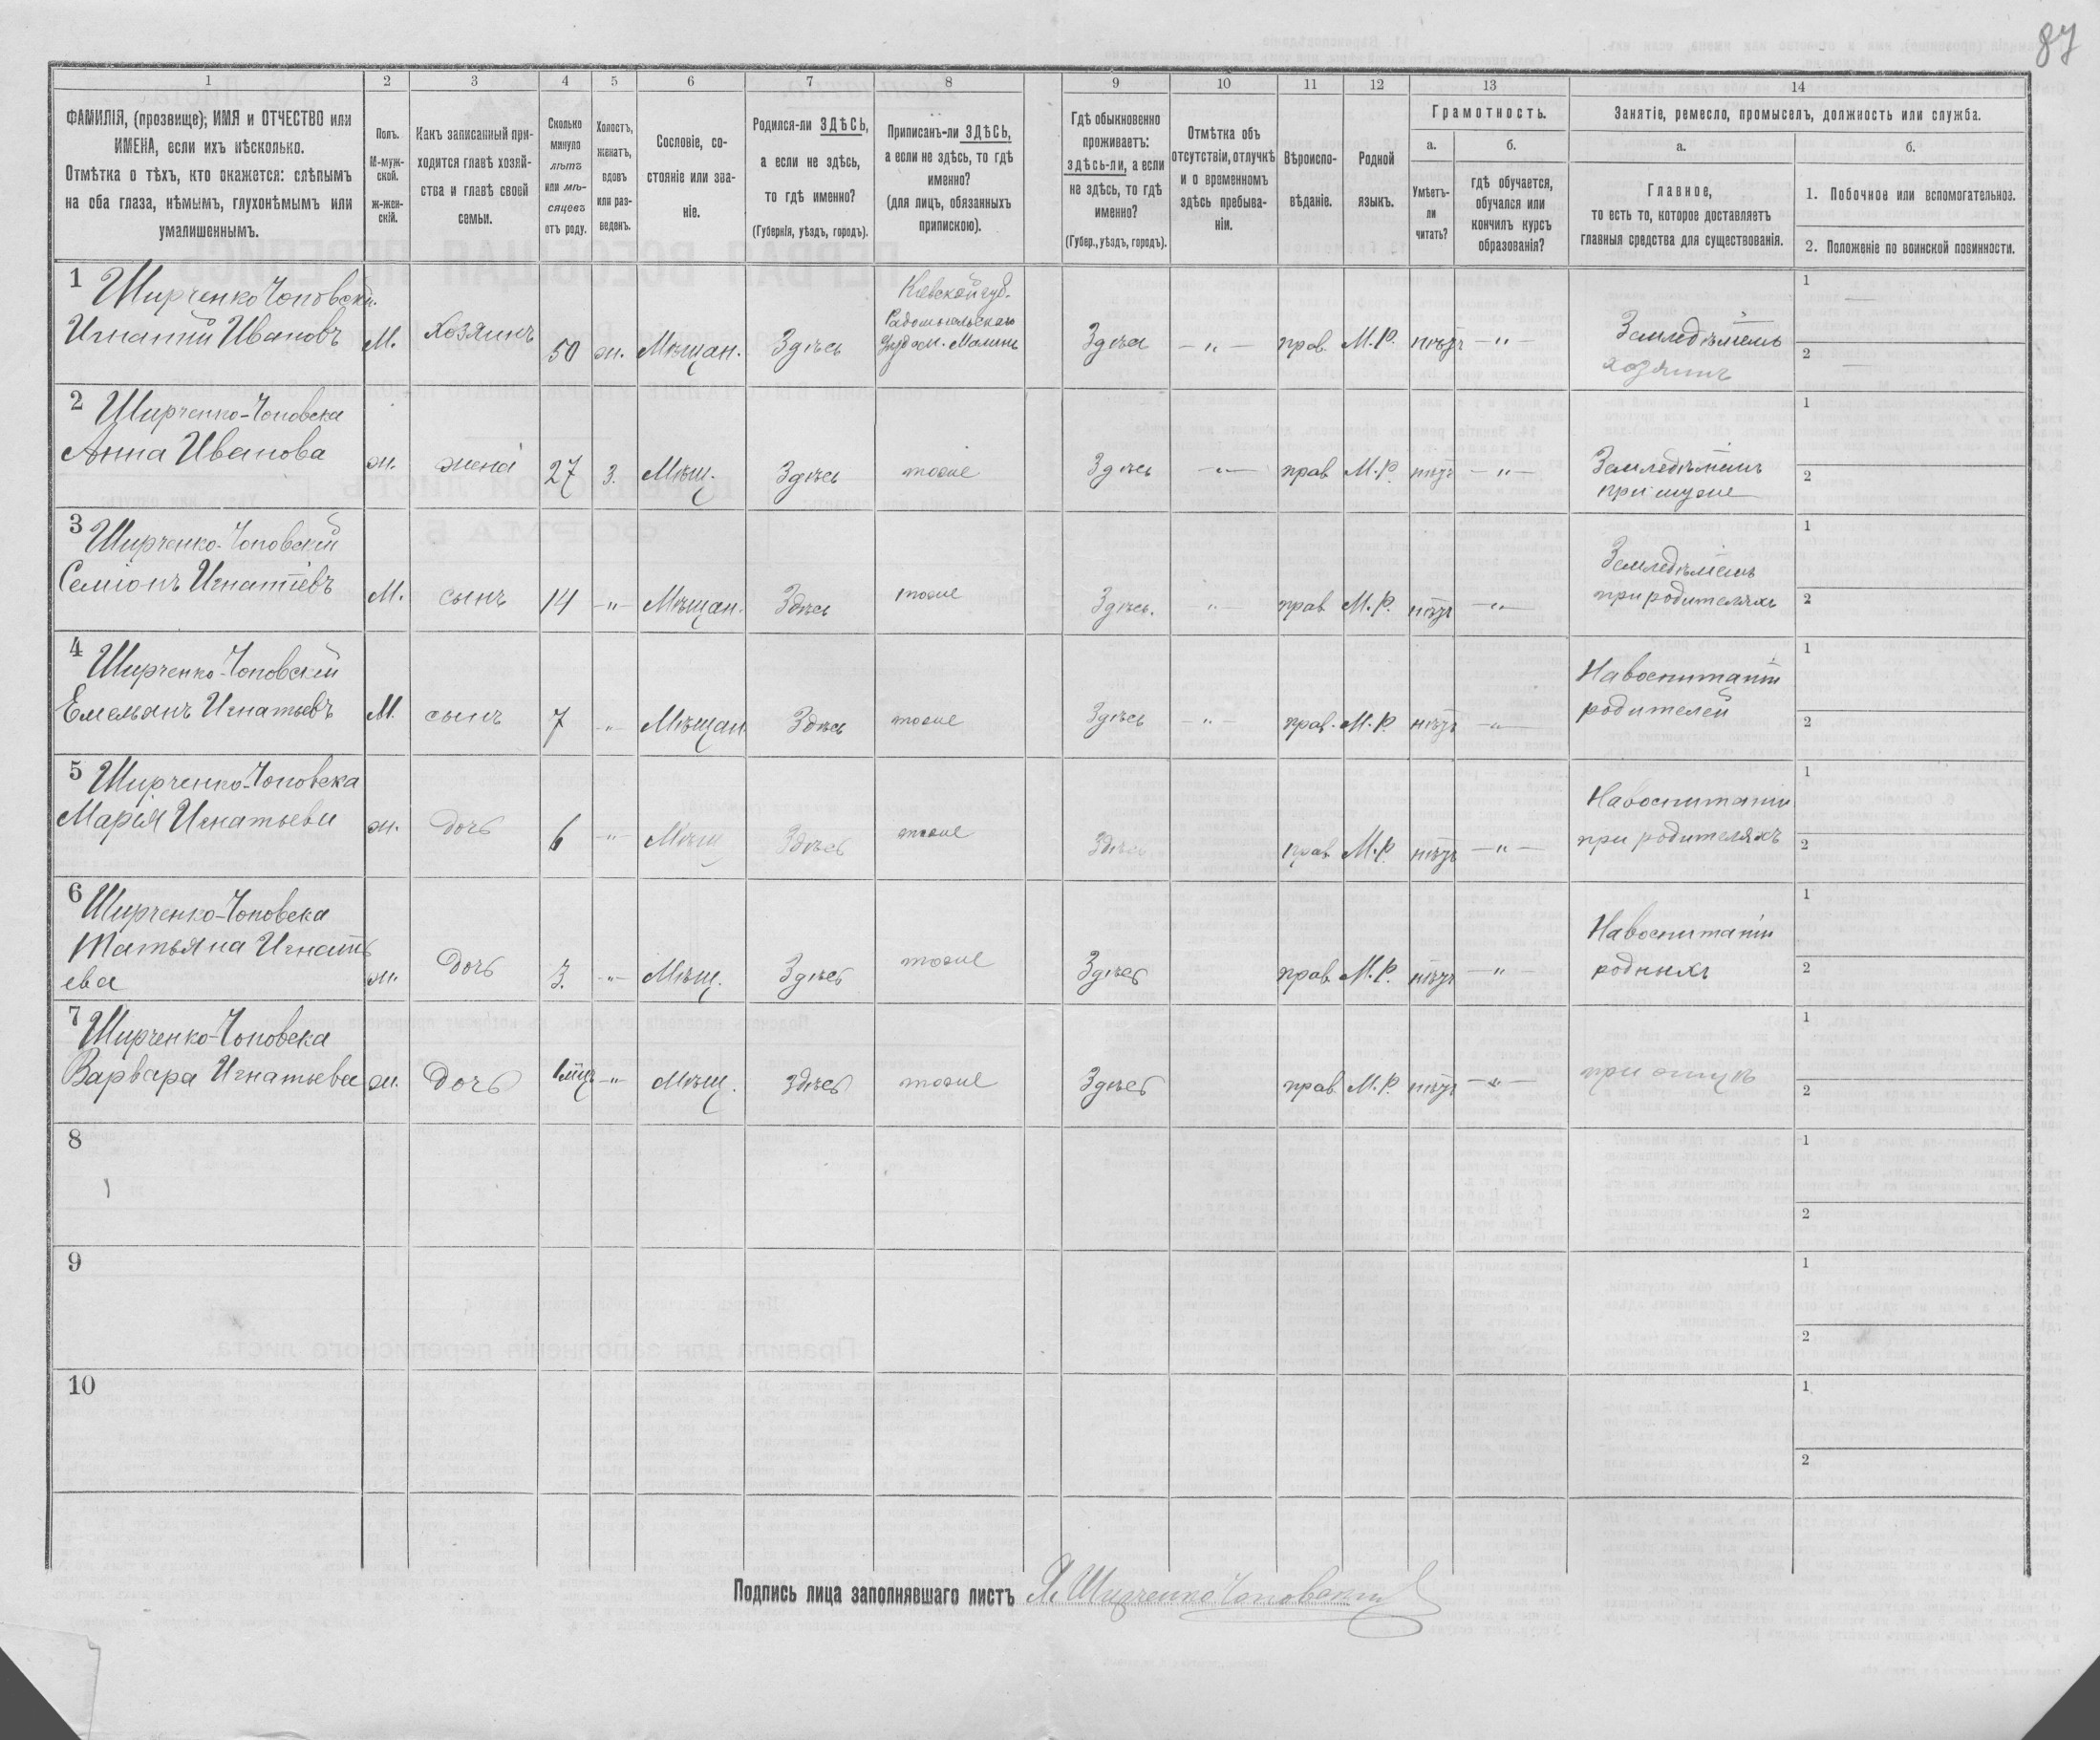 87
1 2 3 4 5 6 7 8 9 10 11 12 13 14
ФАМИЛІЯ, (прозвище); ИМЯ и ОТЧЕСТВО или
ИМЕНА, если ихъ нѣсколько.
Отмѣтка о тѣхъ, кто окажется: слѣпымъ
на оба глаза, нѣмымъ, глухонѣмымъ или
умалишеннымъ.
Полъ.
М-муж-
ской.
ж-жен-
скій.
Какъ записанный при-
ходится главѣ хозяй-
ства и главѣ своей
семьи.
Сколько
минуло
лѣтъ
или мѣ-
сяцевъ
отъ роду.
Холостъ,
женатъ,
вдовъ
или раз-
веденъ.
Сословіе, со-
стояніе или зва-
ніе.
Родился-ли ЗДѢСЬ,
а если не здѣсь,
то гдѣ именно?
(Губернія, уѣздъ, городъ).
Приписанъ-ли ЗДѢСЬ,
а если не здѣсь, то гдѣ
именно?
(для лицъ, обязанныхъ
припискою).
Гдѣ обыкновенно
проживаетъ:
здѣсь-ли, а если
не здѣсь, то гдѣ
именно?
(Губер., уѣздъ, городъ).
Отмѣтка объ
отсутствіи, отлучкѣ
и о временномъ
здѣсь пребыва-
ніи.
Вѣроиспо-
вѣданіе.
Родной
языкъ.
Грамотность.
а.
Умѣетъ-
ли
читать?
б.
гдѣ обучается,
обучался или
кончилъ курсъ
образованія?
Занятіе, ремесло, промыселъ, должность или служба.
а.
Главное,
то есть то, которое доставляетъ
главныя средства для существованія.
б.
1. Побочное или вспомогательное.
2. Положеніе по воинской повинности.
1 Ширченко Чоповскій
Игнатій Ивановъ М. хозяинъ 50 ж. Мѣщан. Здѣсь
Кіевской губ.
Радомысльскаго
Здѣсь — " — прав. М.Р. нѣтъ — " —
Земледѣлецъ
хозяинъ
1 —
2 —
2 Ширченко-Чоповска
Анна Иванова ж. жена 27 з. Мѣщ. Здѣсь тоже Здѣсь — " — прав М.Р. нѣтъ — " —
Земледѣлецъ
при мужѣ
1
2
3 Ширченко-Чоповскій
Семіонъ Игнатіевъ М. сынъ 14 — " — Мѣщан. Здѣсь тоже Здѣсь. " прав М.Р. нѣтъ — " —
Земледѣлецъ
при родителяхъ
1
2
4 Ширченко-Чоповскій
Емельянъ Игнатьевъ М. сынъ 7 — " — Мѣщан. Здѣсь тоже Здѣсь — " — прав. М.Р. нѣтъ — " —
На воспитаніи
родителей
1
2
5 Ширченко-Чоповска
Марія Игнатьева ж. дочь 6 — " — Мѣщ Здѣсь тоже Здѣсь прав М.Р. нѣтъ — " —
На воспитаніи
при родителяхъ
1
2
6 Ширченко-Чоповска
Татьяна Игнать
ева ж. дочь 3. — " — Мѣщ. Здѣсь тоже Здѣсь прав М.Р. нѣтъ — " —
На воспитаніи
родныхъ
1
2
7 Ширченко-Чоповска
Варвара Игнатьева ж. дочь — " — Мѣщ. здѣсь тоже Здѣсь прав М.Р. нѣтъ — " —
при
1
2
8
1
2
9
1
2
10
1
2
Подпись лица заполнявшаго листъ Я. Ширченко Чоповскій